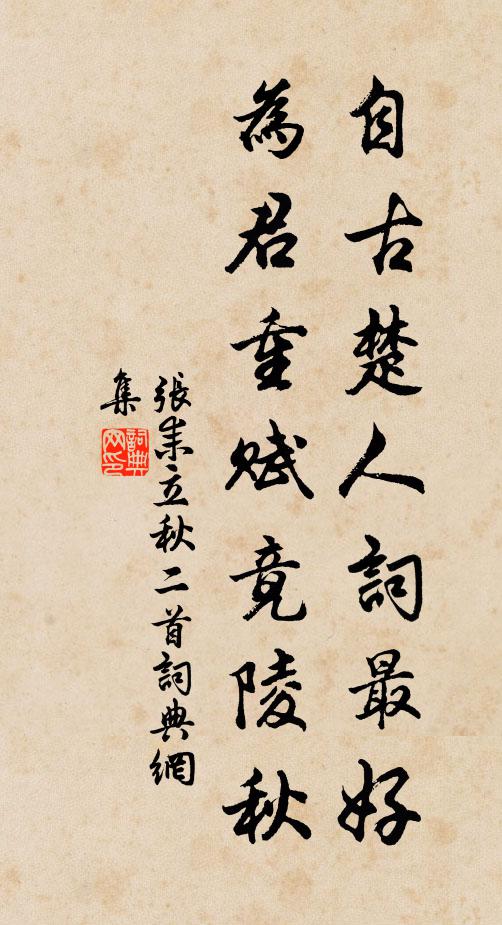 自古楚人詞最好
為君重賦竟陵秋
張耒立秋二首詞典網
集
詞典網印